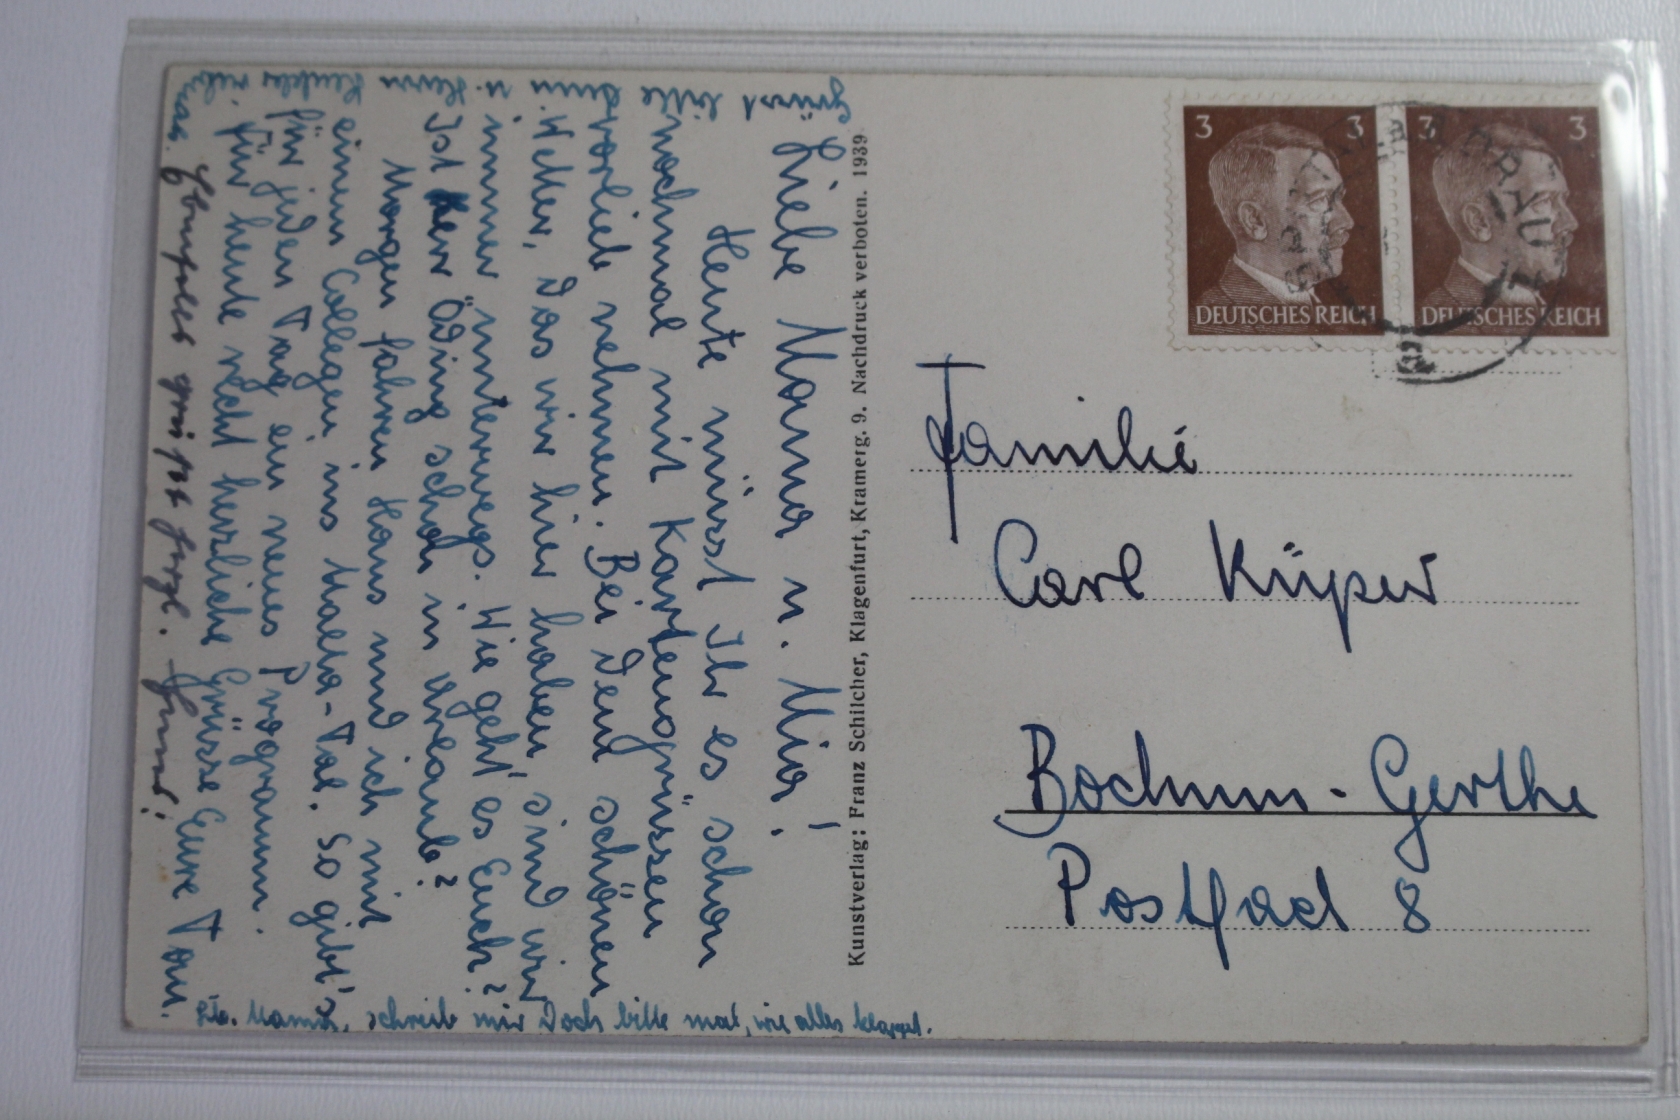 Liebe Mama u. Mia!
Heute müsst Ihr es schon
nochmal mit Kartengrüssen
vorlieb nehmen. Bei dem schönen
Wetter, das wir hier haben, sind wir
immer unterwegs. Wie geht es Euch?
Ist Herr Öding schon in Urlaub?
Morgen fahren Hans und ich mit
einem Collegen ins Malta-Tal. So gibt's
für jeden Tag ein neues Programm.
Für heute recht herzliche Grüsse Eure Toni.
Ebenfalls grüßt herzl. Hans!
Grüsst bitte Ann u. Herrn
Lb. Mama, schreib mir doch bitte mal, wie alles klappt.
Kunstverlag: Franz Schilcher, Klagenfurt, Kramerg. 9. Nachdruck verboten. 1939
3 3
DEUTSCHES REICH
3 3
DEUTSCHES REICH
Familie
Carl Küper
Bochum-Gerthe
Postfach 8